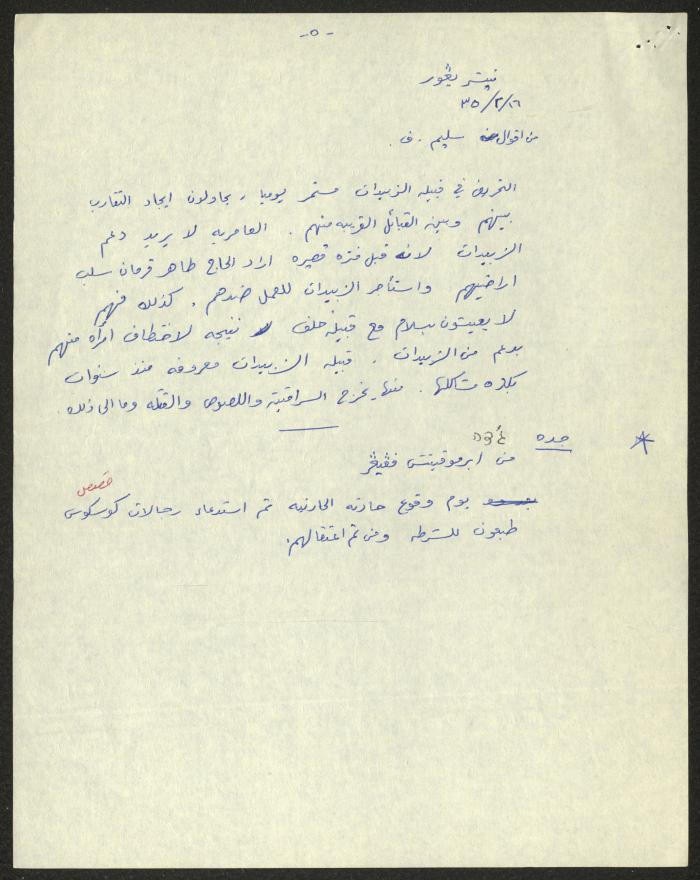 - ٥ -
نيتسر يغور
٣٥/٢/١٦
من اقوال سليم . ف .
التحريض في قبيله الزبيدات مستمر يوميا ، يحاولون ايجاد التقارب
بينهم وبين القبائل القريبه منهم . العامريه لا يريد دعم
الزبيدات لانه قبل فتره قصيره اراد الحاج طاهر قرمان سلب
اراضيهم واستأجر الزبيدات للعمل ضدهم . كذلك فهم
لا يعيشون بسلام مع قبيله خلف نتيجه لاختطاف امرأه منهم
بدعم من الزبيدات . قبيله الزبيدات معروفه منذ سنوات
بكثره مشاكلها . منها يخرج السراقين واللصوص والقتله وما الى ذلك .
* جده
من ابرموفيتش
خصوصي
يوم وقوع حادثه الحارثيه تم استدعاء رجالات كوسكوس
طبعون للشرطه ومن ثم اعتقالهم .